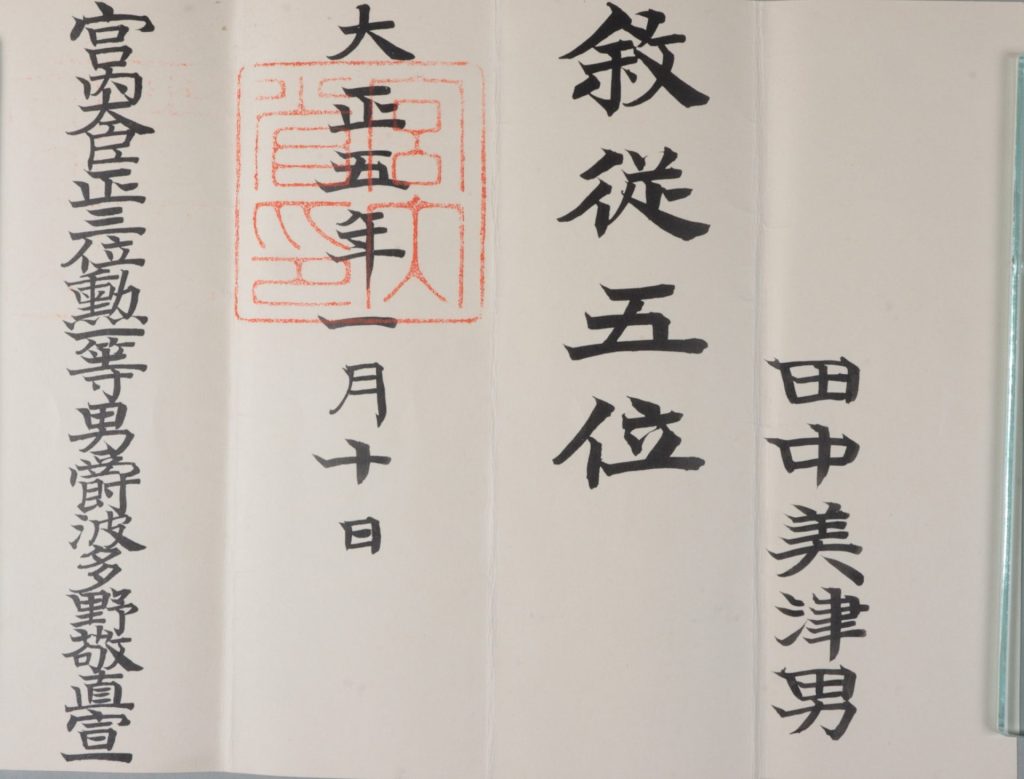 田中美津男
敘從五位
大正五年一月十日
宮内省印
宮内大臣正三位勳一等男爵波多野敬直宣